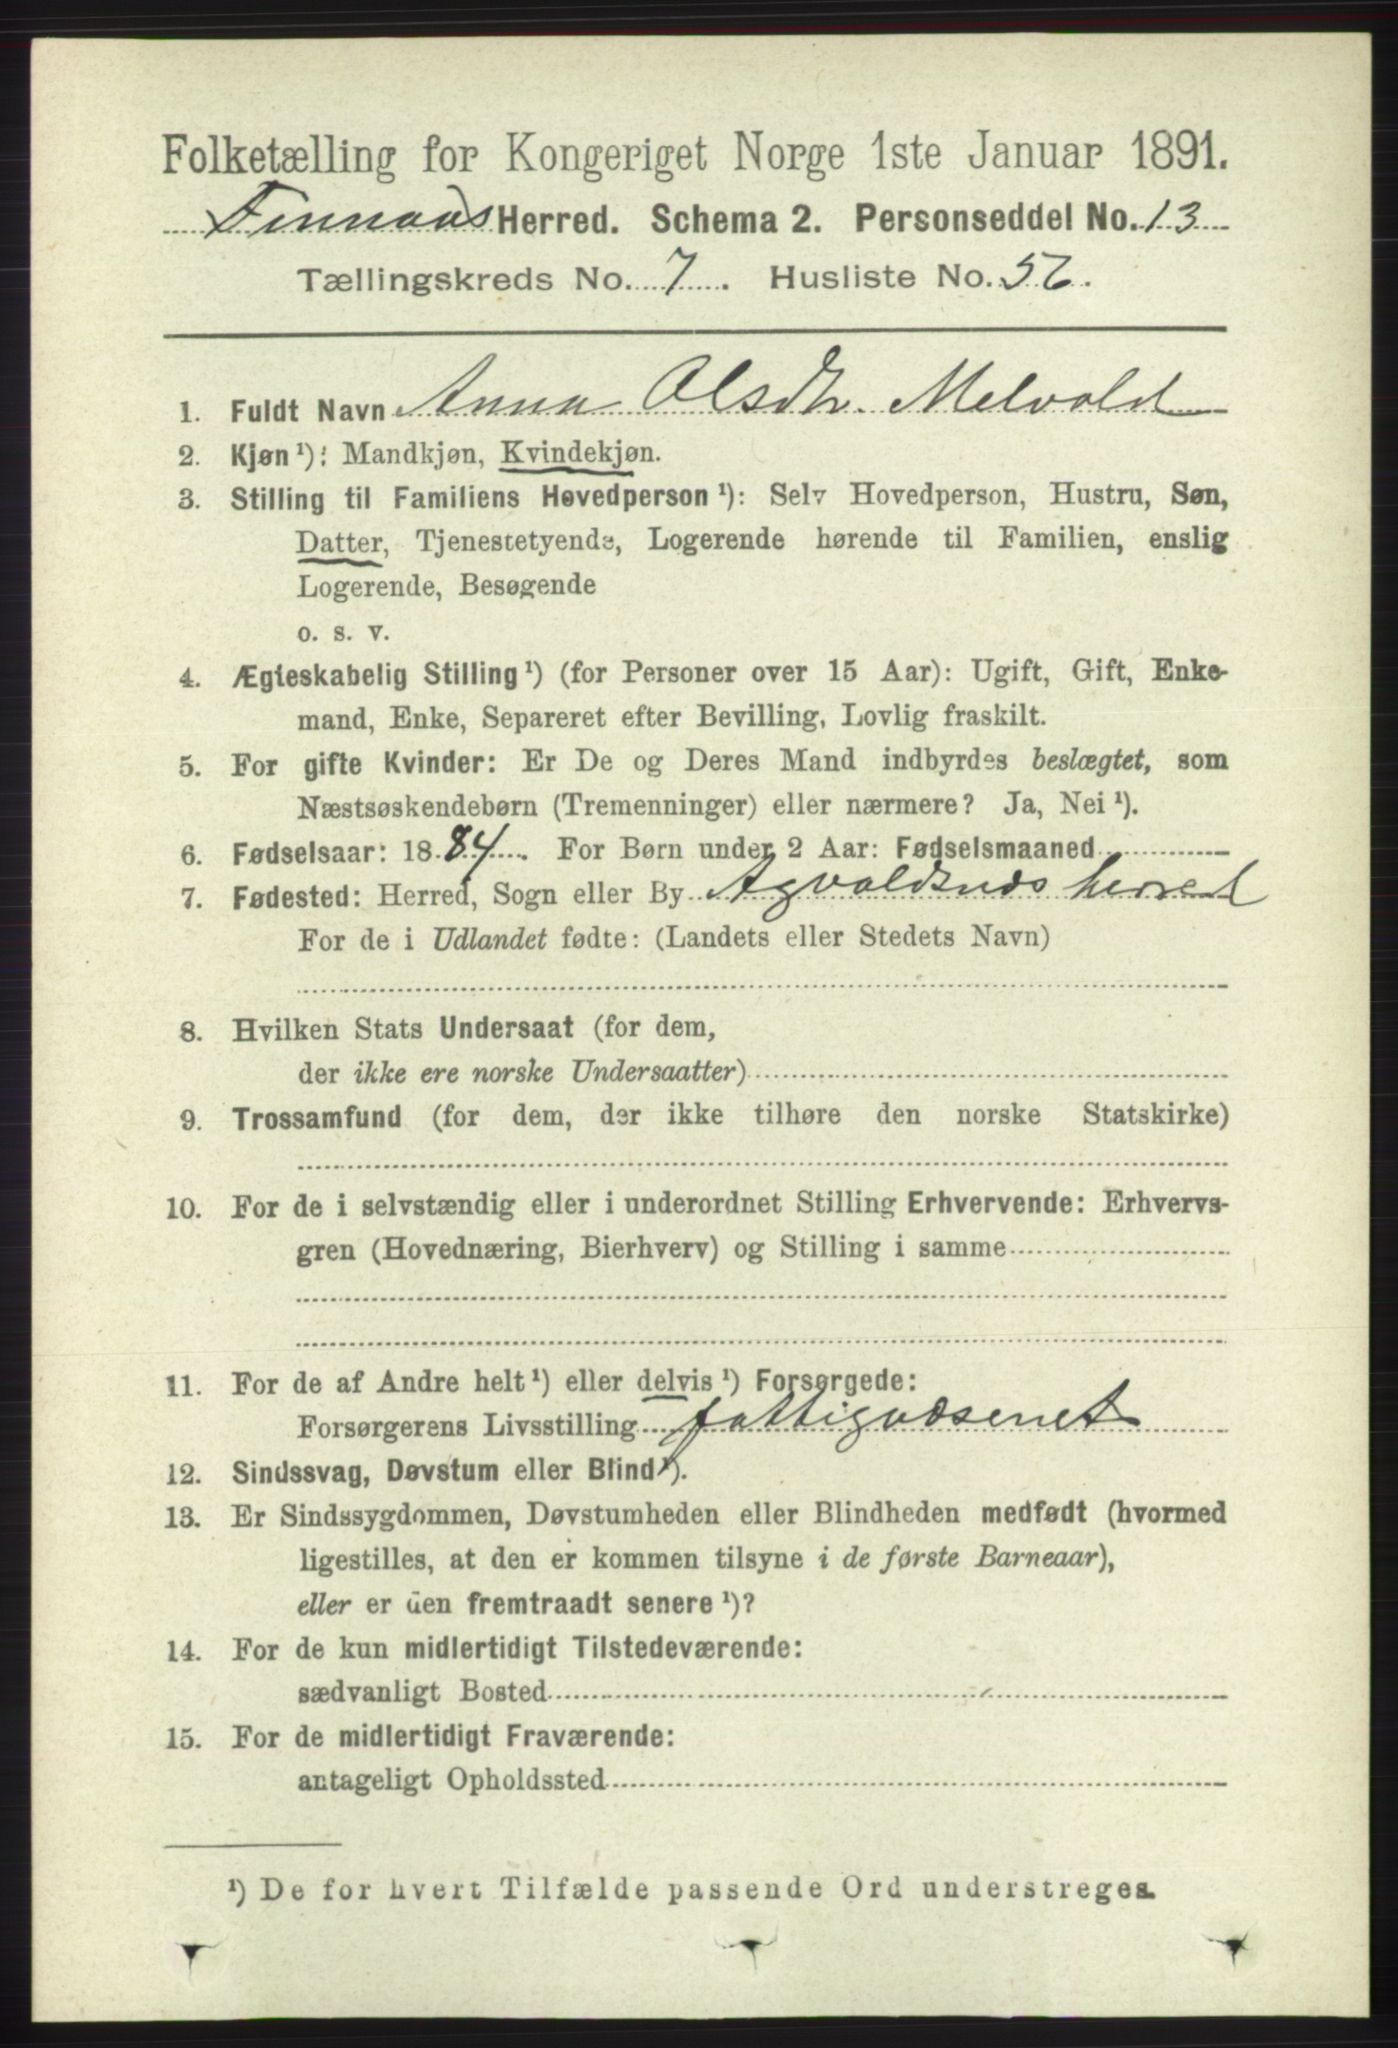 Folketælling for Kongeriget Norge 1ste Januar 1891.
Finnaas Herred. Schema 2. Personseddel No. 13
Tællingskreds No. 7. Husliste No. 56.
1. Fuldt Navn Anna Olsdtr. Melvold
2. Kjøn ¹): Mandkjøn, Kvindekjøn.
3. Stilling til Familiens Hovedperson ¹): Selv Hovedperson, Hustru, Søn,
Datter, Tjenestetyende, Logerende hørende til Familien, enslig
Logerende, Besøgende
o. s. v.
4. Ægteskabelig Stilling ¹) (for Personer over 15 Aar): Ugift, Gift, Enke-
mand, Enke, Separeret efter Bevilling, Lovlig fraskilt.
5. For gifte Kvinder: Er De og Deres Mand indbyrdes beslægtet, som
Næstsøskendebørn (Tremenninger) eller nærmere? Ja, Nei ¹).
6. Fødselsaar: 1884. For Børn under 2 Aar: Fødselsmaaned
7. Fødested: Herred, Sogn eller By Agvaldsnæs herred
For de i Udlandet fødte: (Landets eller Stedets Navn)
8. Hvilken Stats Undersaat (for dem,
der ikke ere norske Undersaatter)
9. Trossamfund (for dem, der ikke tilhøre den norske Statskirke)
10. For de i selvstændig eller i underordnet Stilling Erhvervende: Erhvervs-
gren (Hovednæring, Bierhverv) og Stilling i samme
11. For de af Andre helt ¹) eller delvis ¹) Forsørgede:
Forsørgerens Livsstilling fattigvæsenet
12. Sindssvag, Døvstum eller Blind ¹).
13. Er Sindssygdommen, Døvstumheden eller Blindheden medfødt (hvormed
ligestilles, at den er kommen tilsyne i de første Barneaar),
eller er den fremtraadt senere ¹)?
14. For de kun midlertidigt Tilstedeværende:
sædvanligt Bosted
15. For de midlertidigt Fraværende:
antageligt Opholdssted
¹) De for hvert Tilfælde passende Ord understreges.